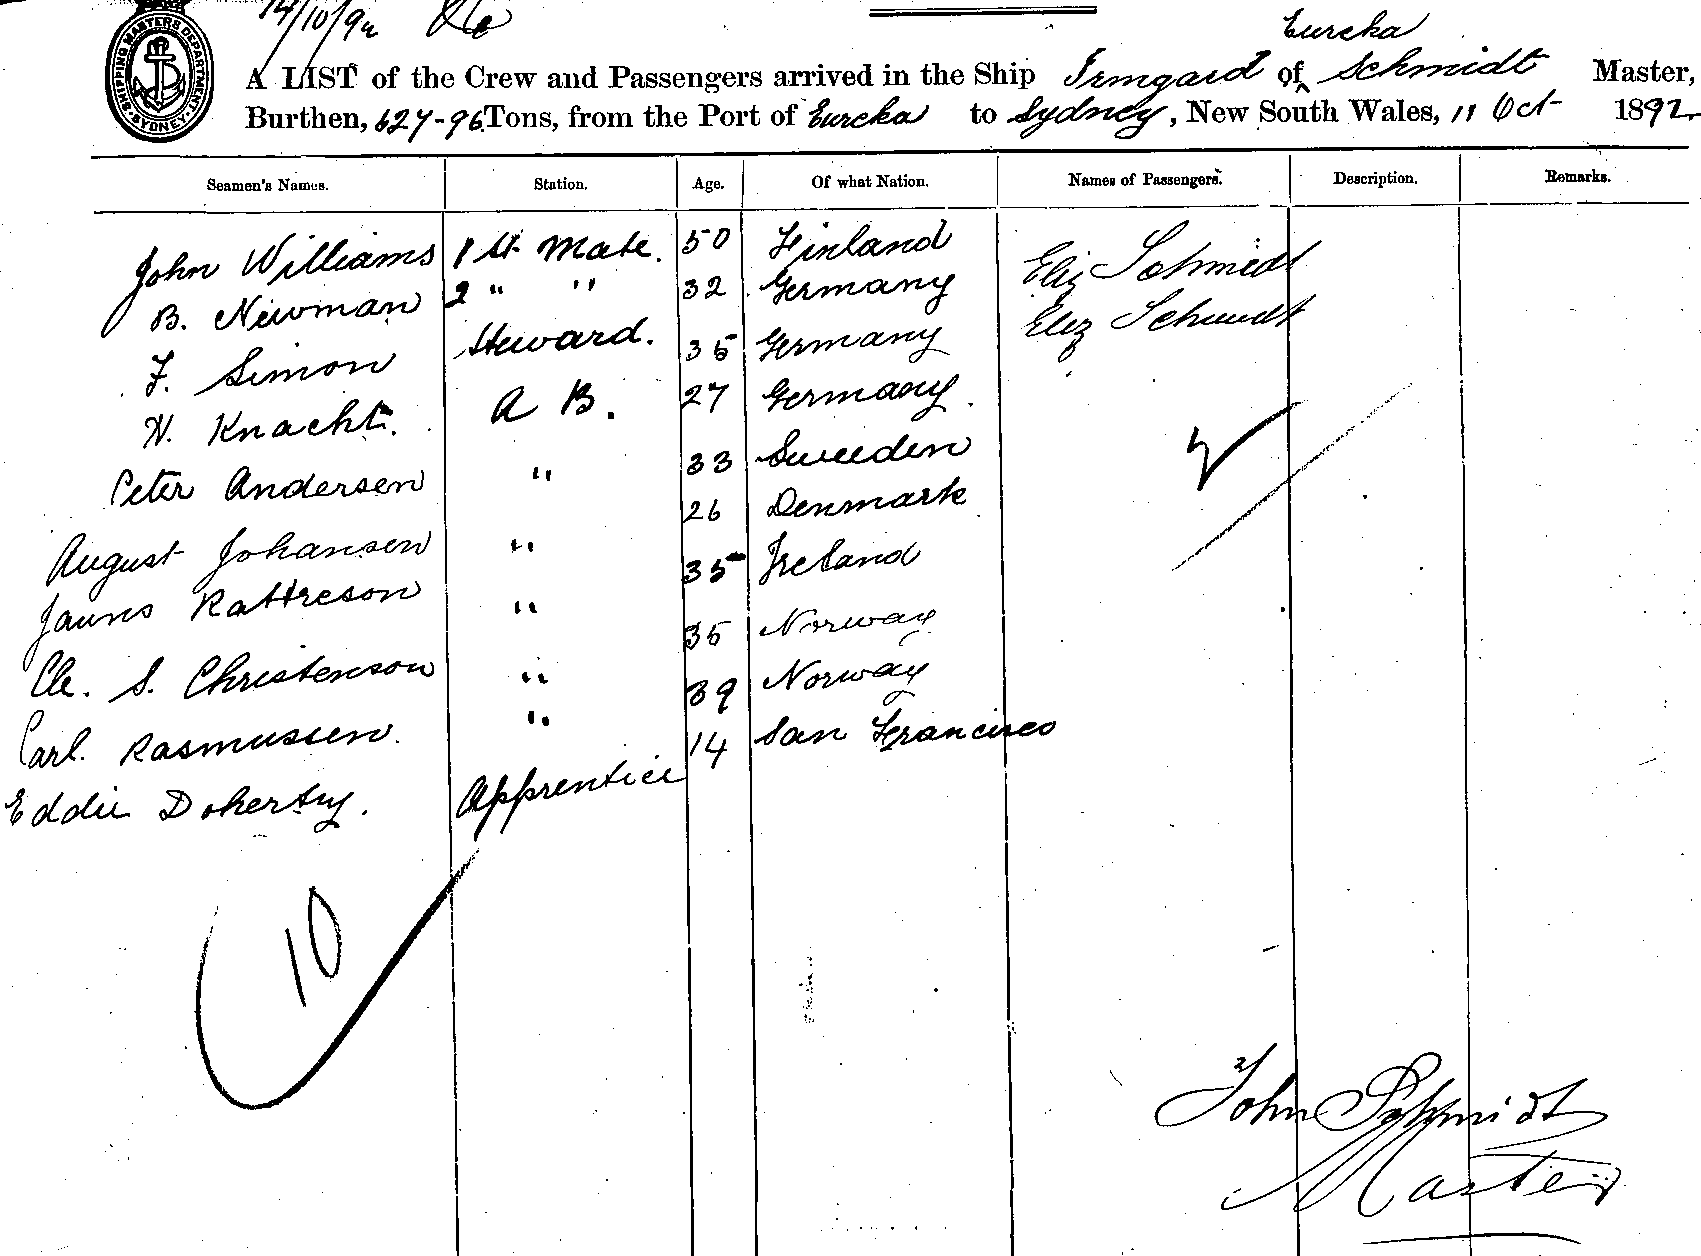 14/10/92
Eureka
A LIST of the Crew and Passengers arrived in the Ship Irmgard of Schmidt Master,
SHIPPING MASTERS DEPARTMENT SYDNEY
Burthen, 627-96 Tons, from the Port of Eureka to Sydney, New South Wales, 11 Oct 1892
Seamen's Names. Station. Age. Of what Nation. Names of Passengers. Description. Remarks.
John Williams 1st Mate. 50 Finland Eliz Schmidt
B. Newman 2 " " 32 Germany Eliz Schmidt
F. Simon Steward. 35 Germany
H. Knacht. A B. 27 Germany.
Peter Andersen " 33 Sweeden
August Johansen " 26 Denmark
Rattreson " 35 Ireland
S. Christenson " 35 Norway
Carl. Rasmussen. " 39 Norway
Eddie Doherty. Apprentice 14 San Francisco
10
John Schmidt
Master